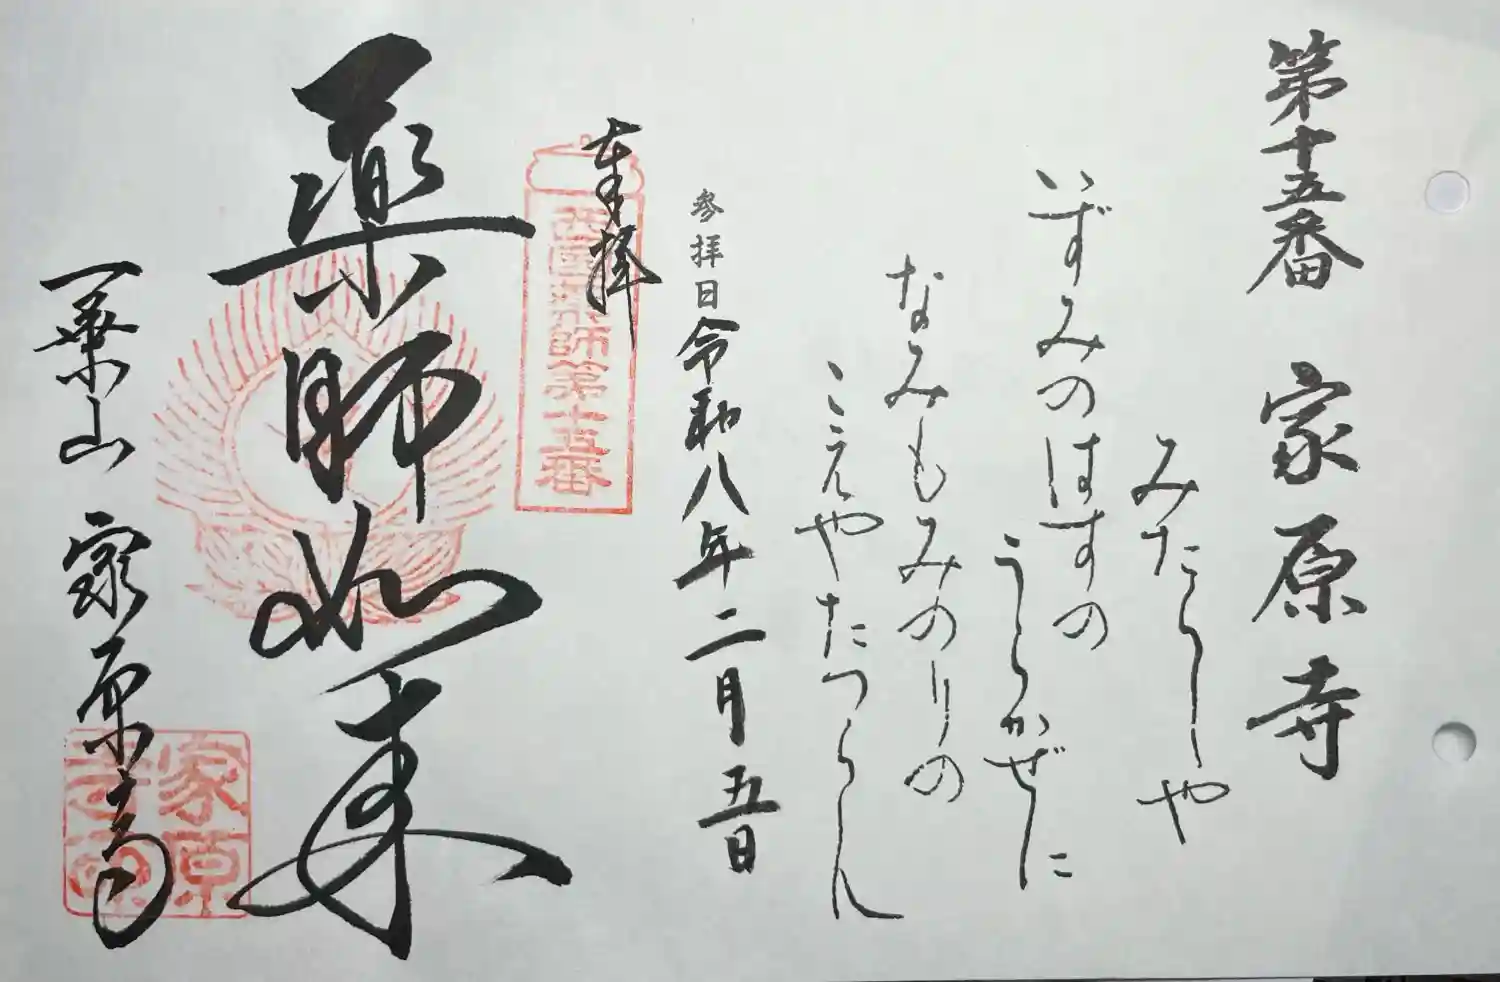 第十五番 家原寺
みたらしや
いずみのはすの
うらかぜに
なみもみのりの
こえやたつらん
参拝日 令和八年二月五日
奉拝
西国薬師第十五番
薬師如来
一乗山 家原寺
家原寺印